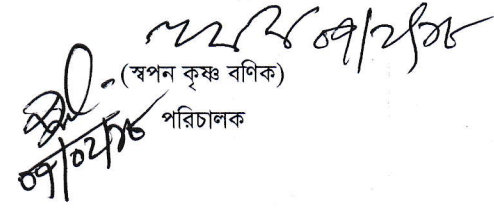 ০৭/০২/১৮
(স্বপন কৃষ্ণ বণিক)
পরিচালক
০৭/০২/১৮